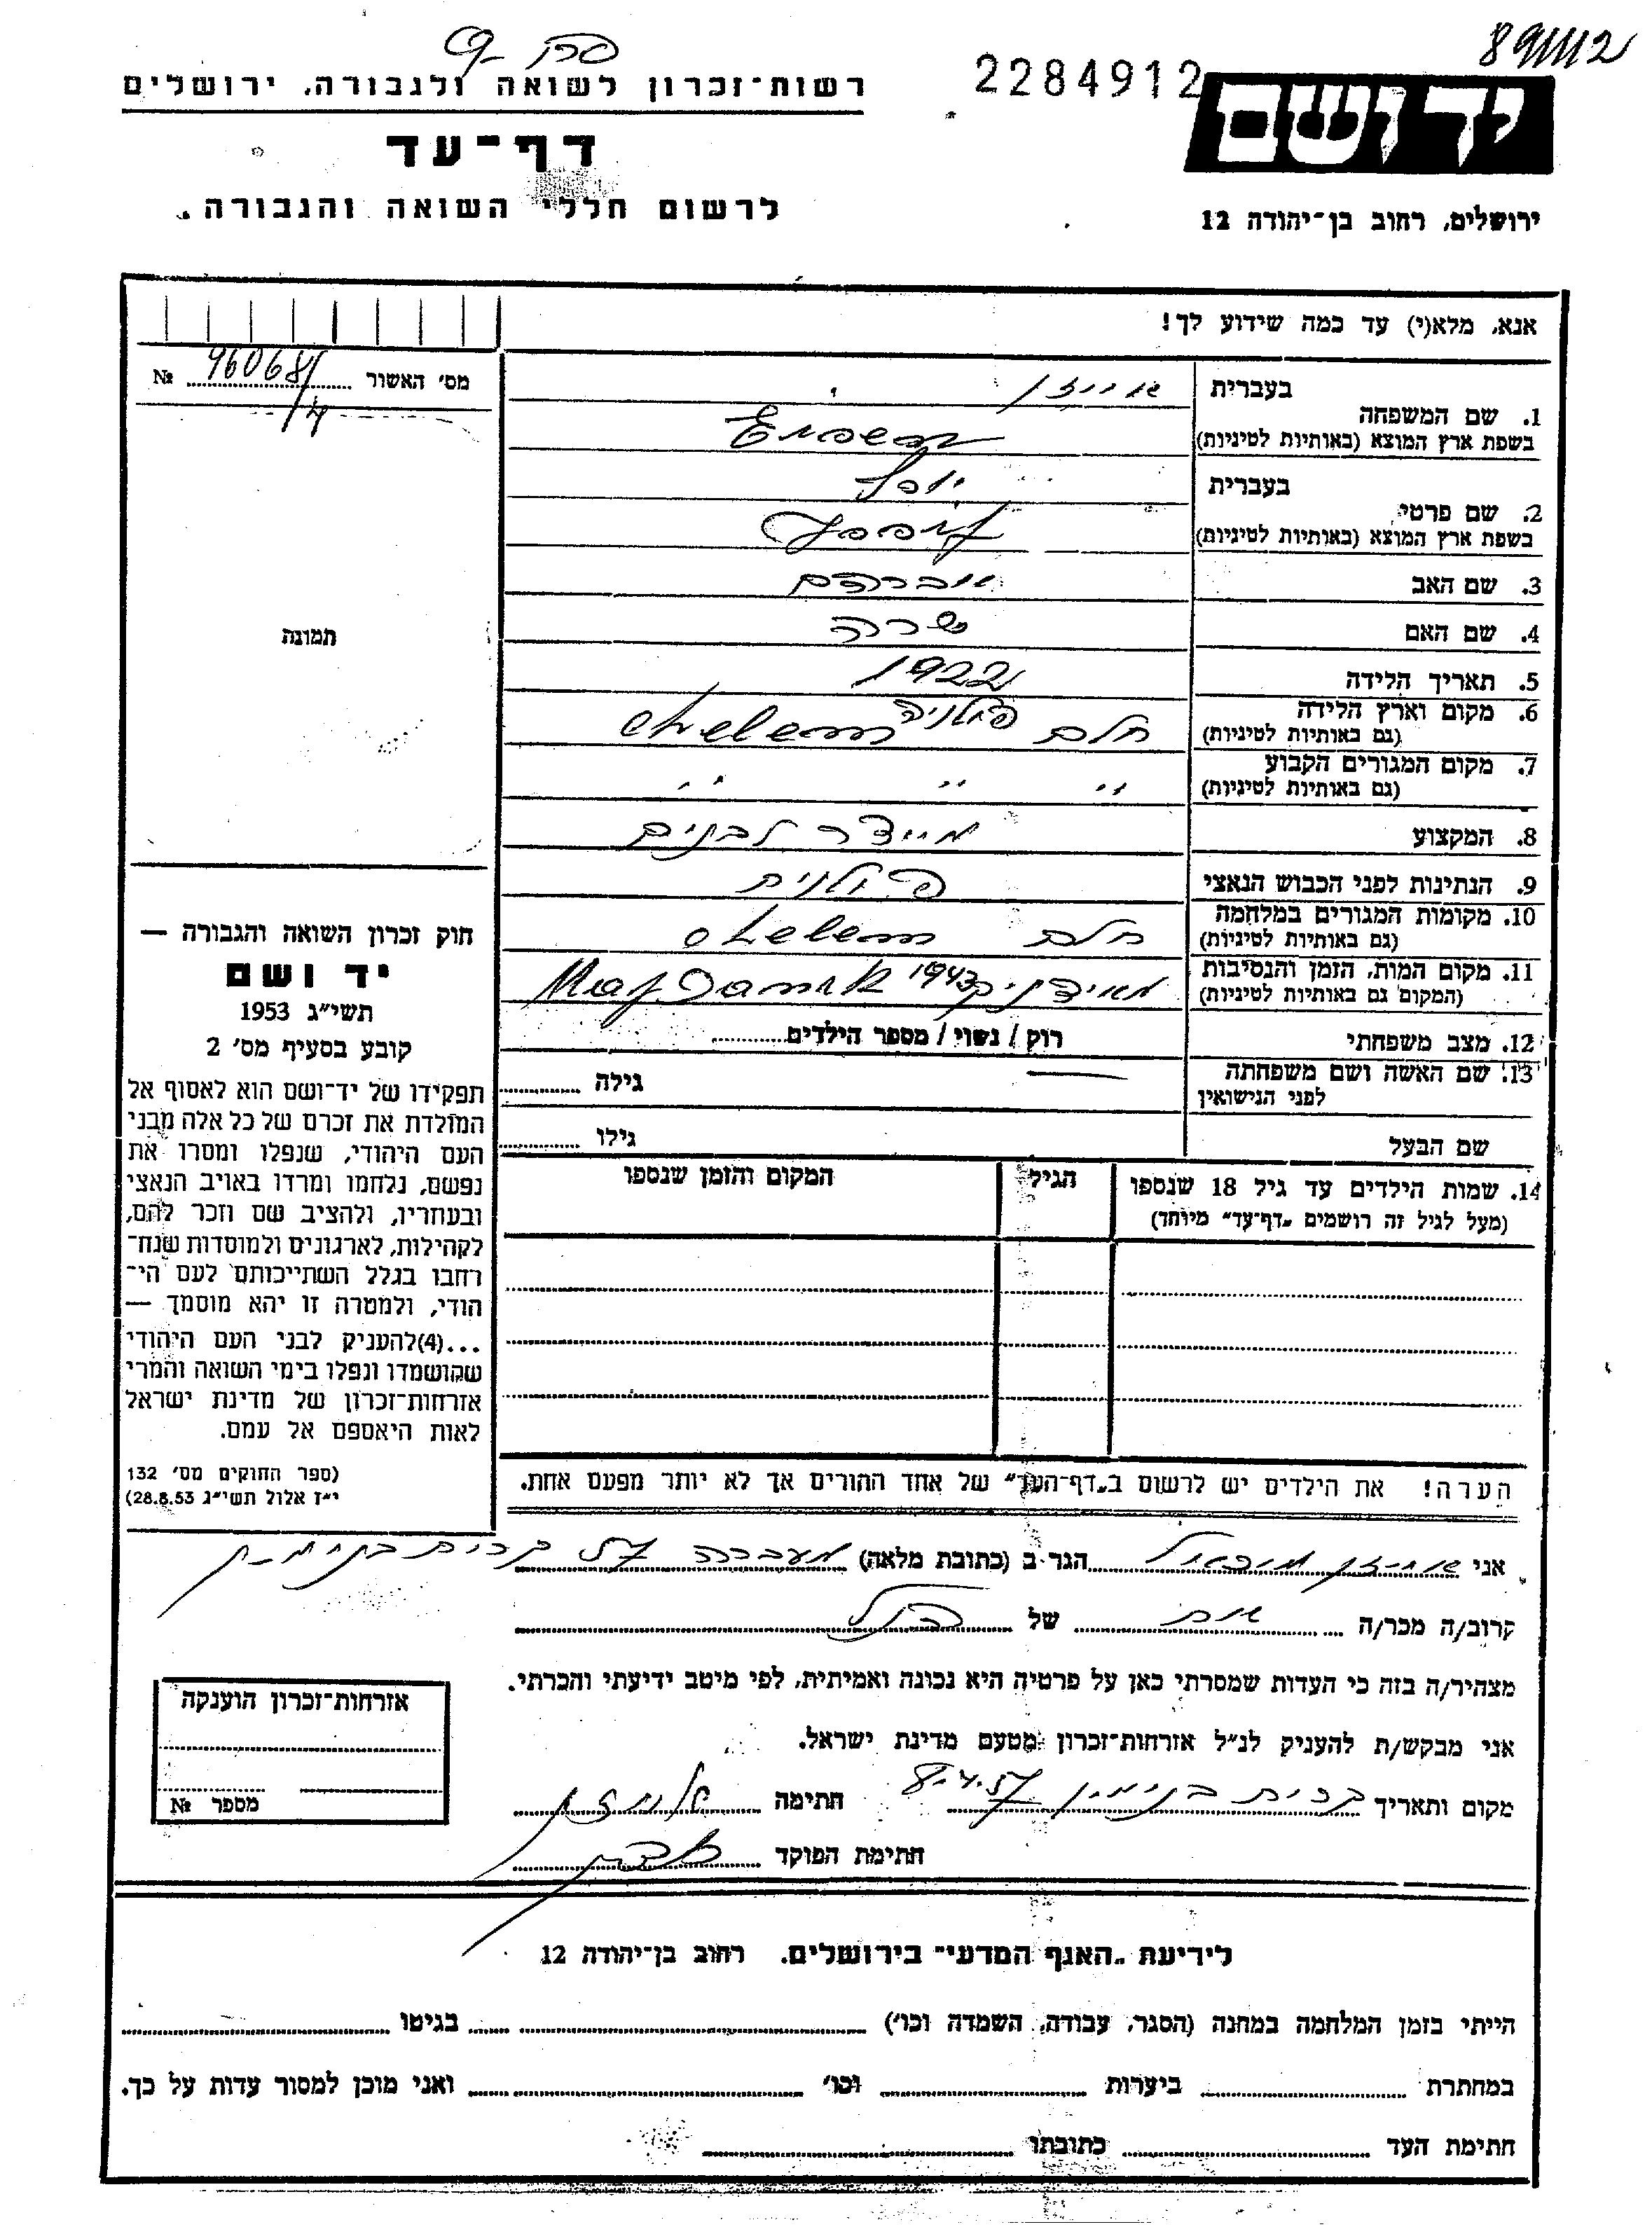 891112
2284912
יד ושם
ירושלים, רחוב בן־יהודה 12
רשות־זכרון לשואה ולגבורה, ירושלים
דף־עד
לרשום חללי השואה והגבורה.
אנא, מלא(י) עד כמה שידוע לך!
מס' האשור № 96068/
4
תמונה
1. שם המשפחה
בעברית אייזן
בשפת ארץ המוצא (באותיות לטיניות) Eisen
2. שם פרטי
בעברית יוסף
בשפת ארץ המוצא (באותיות לטיניות) Josef
3. שם האב אברהם
4. שם האם שרה
5. תאריך הלידה 1922
6. מקום וארץ הלידה חלם פולניה chelem
(גם באותיות לטיניות)
7. מקום המגורים הקבוע " " "
(גם באותיות לטיניות)
8. המקצוע מייצר לבנים
9. הנתינות לפני הכבוש הנאצי פולנית
10. מקומות המגורים במלחמה חלם chelem
(גם באותיות לטיניות)
11. מקום המות, הזמן והנסיבות מאידניק 1943 Majdanek
(המקום גם באותיות לטיניות)
12. מצב משפחתי רוק / נשוי / מספר הילדים
13. שם האשה ושם משפחתה גילה
לפני הנישואין
שם הבעל גילו
14. שמות הילדים עד גיל 18 שנספו הגיל המקום והזמן שנספו
(מעל לגיל זה רושמים „דף־עד" מיוחד)
הערה! את הילדים יש לרשום ב„דף־העד" של אחד ההורים אך לא יותר מפעם אחת.
חוק זכרון השואה והגבורה —
יד ושם
תשי"ג 1953
קובע בסעיף מס' 2
תפקידו של יד־ושם הוא לאסוף אל
המולדת את זכרם של כל אלה מבני
העם היהודי, שנפלו ומסרו את
נפשם, נלחמו ומרדו באויב הנאצי
ובעוזריו, ולהציב שם וזכר להם,
לקהילות, לארגונים ולמוסדות שנח־
רחבו בגלל השתייכותם לעם הי־
הודי, ולמטרה זו יהא מוסמך —
...(4)להעניק לבני העם היהודי
שהושמדו ונפלו בימי השואה והמרי
אזרחות־זכרון של מדינת ישראל
לאות היאספם אל עמם.
(ספר החוקים מס' 132
י"ז אלול תשי"ג 28.8.53)
אני אייזן מיכאל הגר ב (כתובת מלאה) מעברה קרית בנימין
קרוב/ה מכר/ה אח של הנ"ל
מצהיר/ה בזה כי העדות שמסרתי כאן על פרטיה היא נכונה ואמיתית, לפי מיטב ידיעתי והכרתי.
אני מבקש/ת להעניק לנ"ל אזרחות־זכרון מטעם מדינת ישראל.
מקום ותאריך קרית בנימין 8.4.57 חתימה
חתימת הפוקד
אזרחות־זכרון הוענקה
מספר №
לידיעת „האגף המדעי" בירושלים. רחוב בן־יהודה 12
הייתי בזמן המלחמה במחנה (הסגר, עבודה, השמדה וכו') בגיטו
במחתרת ביערות וכו' ואני מוכן למסור עדות על כך.
חתימת העד כתובתו